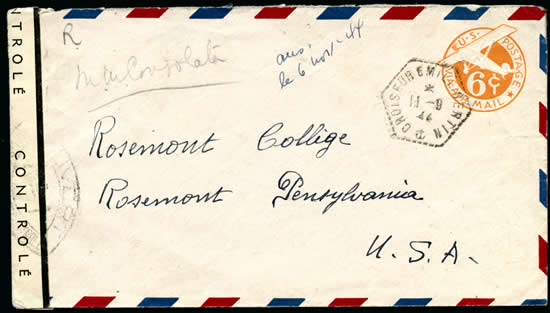 R
M. M. Consolata
ans.
le 6 nov. 44
U.S. POSTAGE
6¢
VIA AIR MAIL
CROISEUR EMILE BERTIN
*
11-9
44
Rosemont College
Rosemont Pensylvania
U.S.A.
NTROLÉ
CONTROLÉ